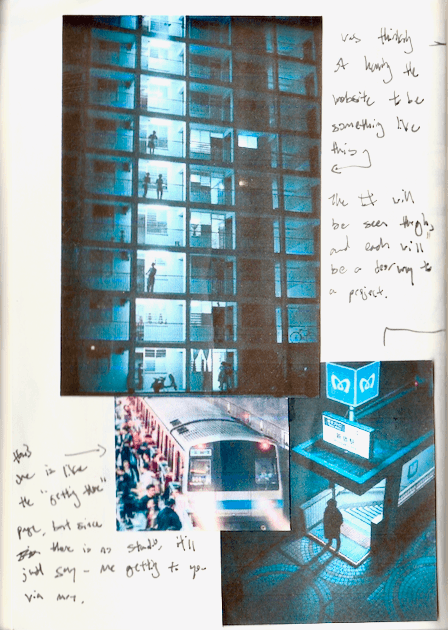 was thinking
of having the
website to be
something like
this
The # will
be seen though
and each will
be a doorway to
a project.
this
one is like
the "getting there"
page, but since
there is no studio, it'll
just say - me getting to you
via